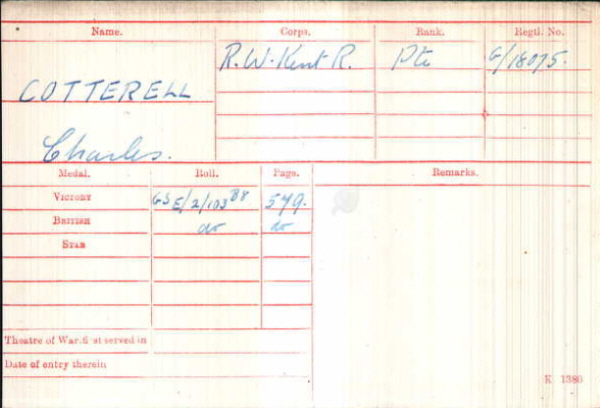 Name. Corps. Rank. Regtl. No.
COTTERELL R.W.Kent R. Pte G/18075.
Charles.
Medal. Roll. Page. Remarks.
VICTORY GSE/2/103 B8 579.
BRITISH do do
STAR
Theatre of War first served in
Date of entry therein
K 1380